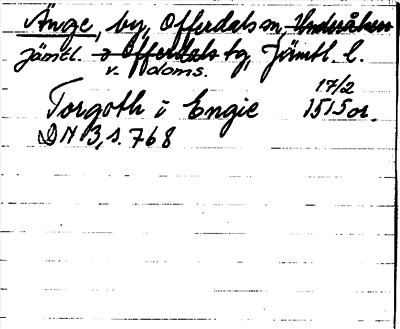 Änge, by, Offerdals sn, Undersåkers
Jämtl. o Offerdals tg, Jämtl. l.
v. doms.
Torgoth i Engie 17/2 1515 or.
DN 3, s. 768